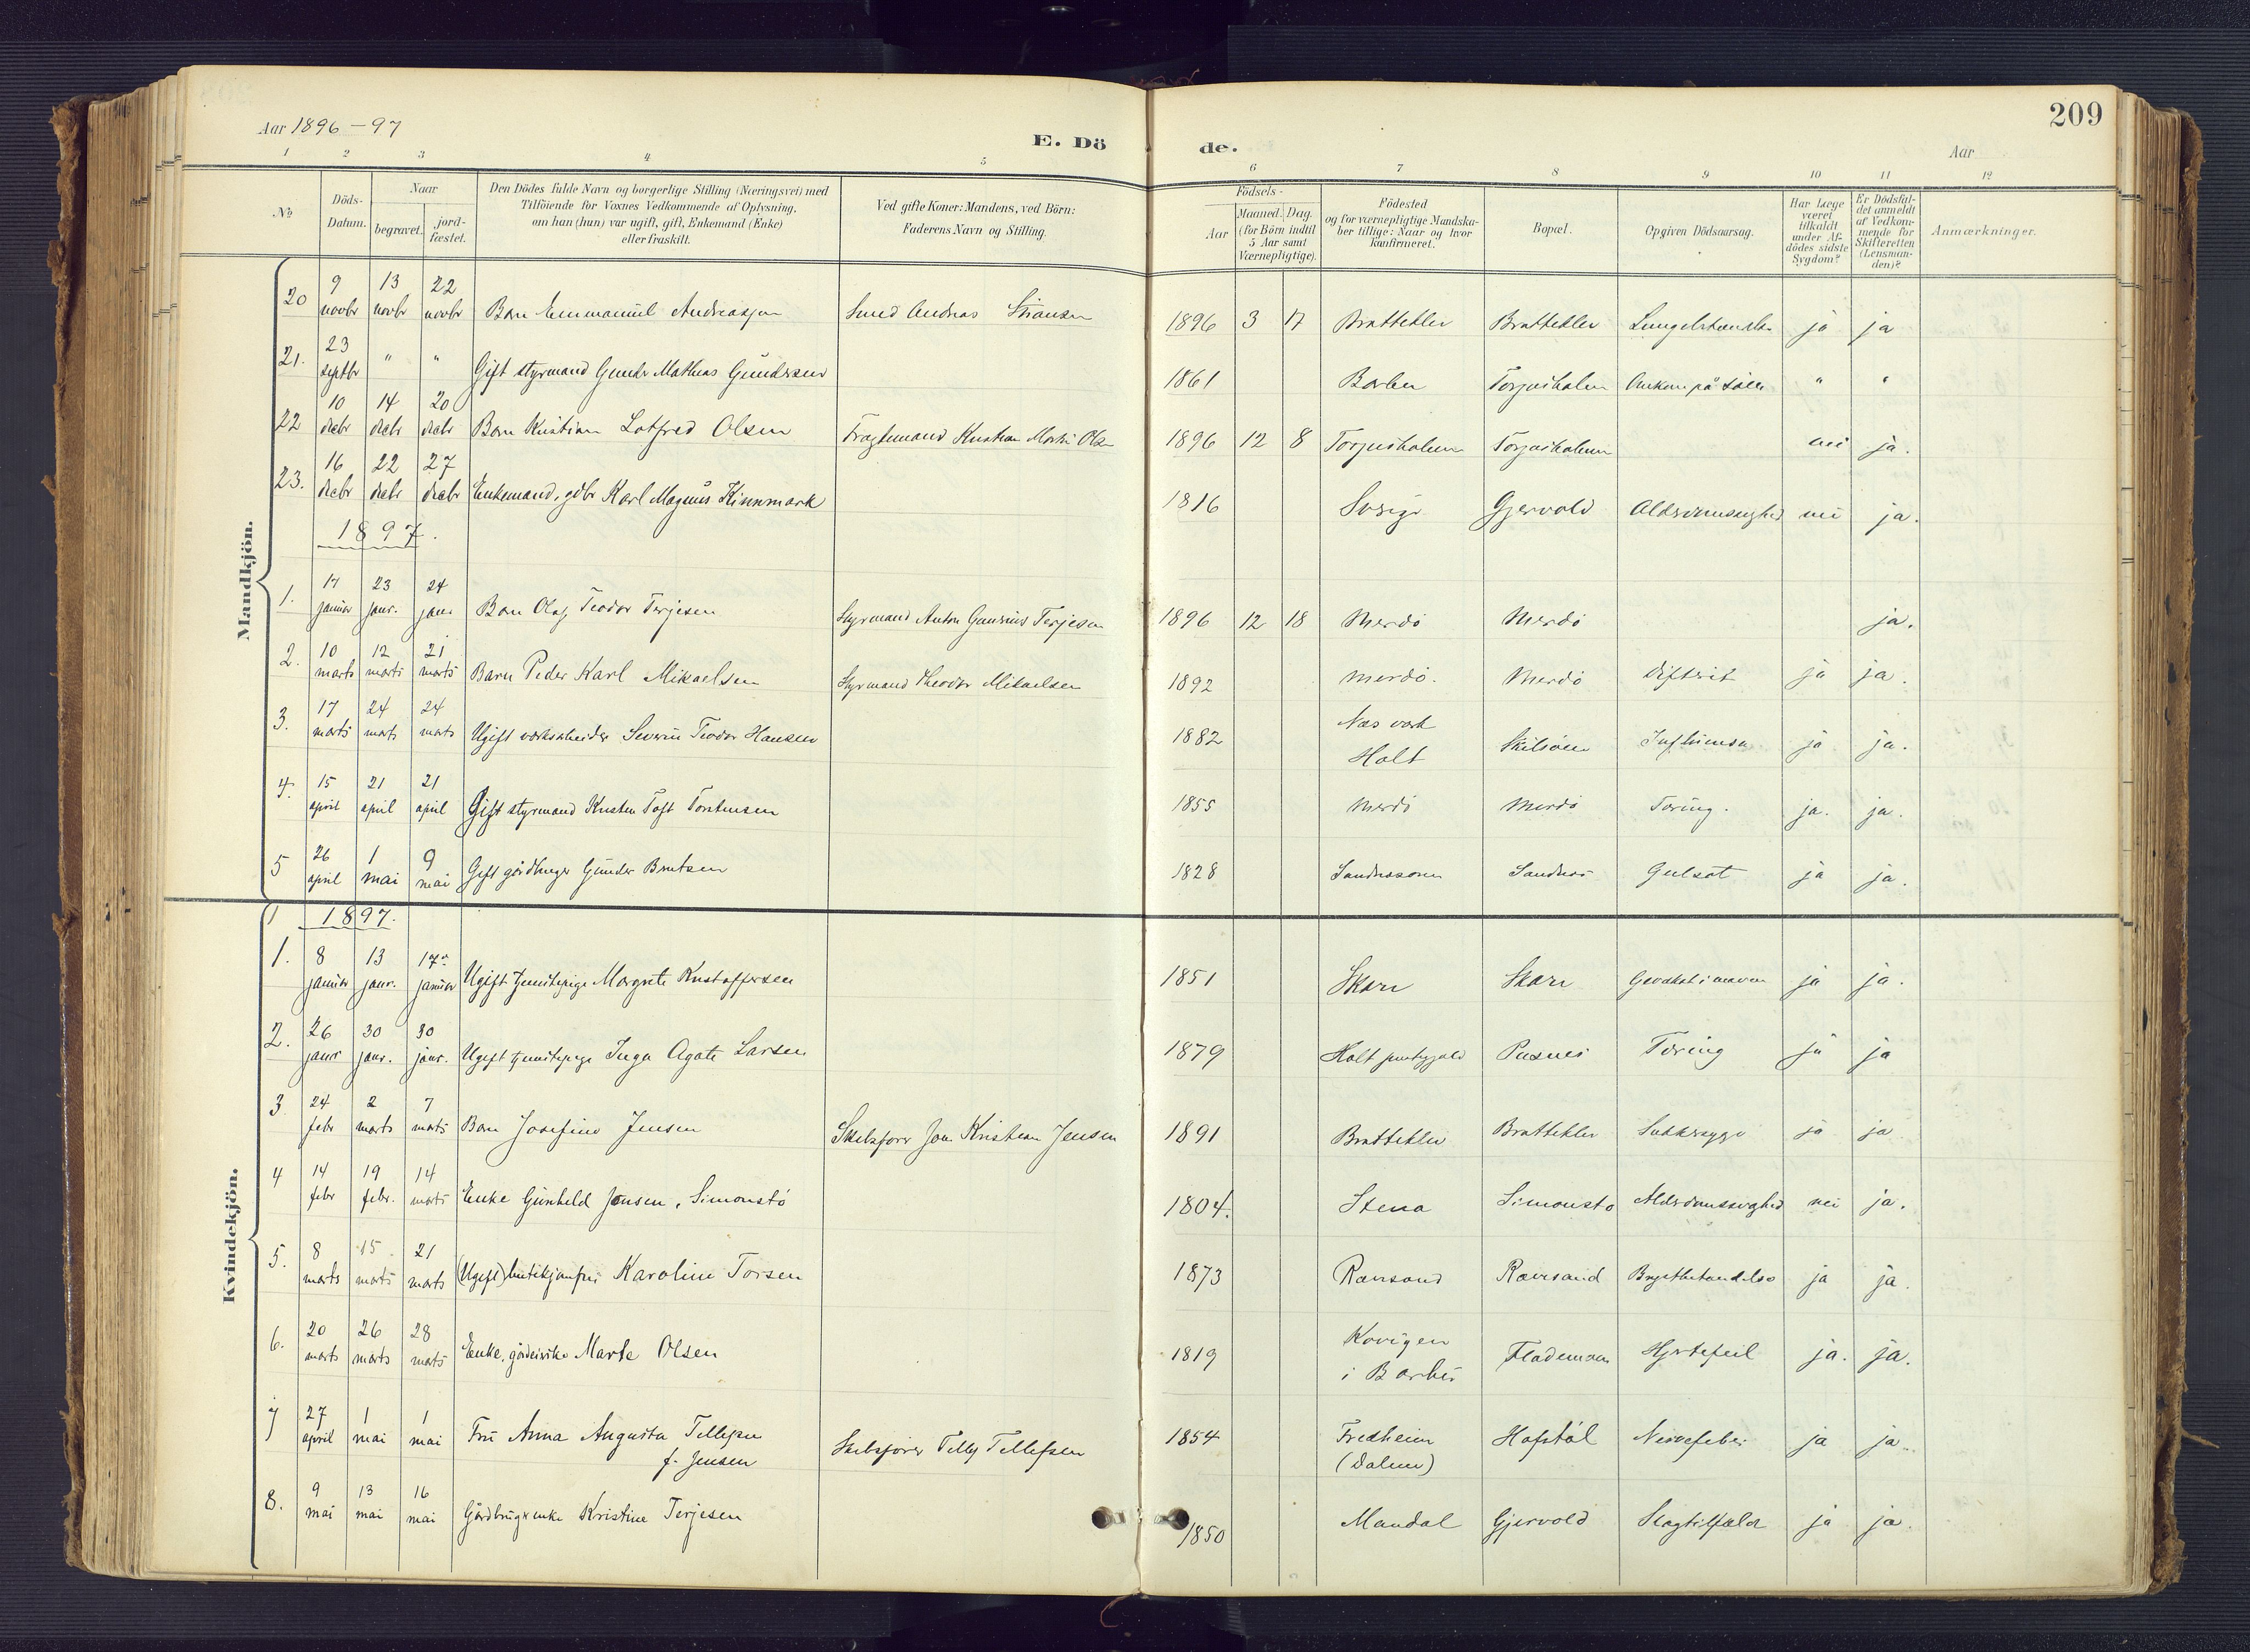 209
Aar 1896 - 97
E. Dö de.
Aar
1 2 3 4 5 6 7 8 9 10 11 12
No
Döds-Datum.
Naar
begravet.
jord-fæstet.
Den Dödes fulde Navn og borgerlige Stilling (Næringsvei) med
Tilföiende for Voxnes Vedkommende af Oplysning.
om han (hun) var ugift, gift, Enkemand (Enke)
eller fraskilt.
Ved gifte Koner: Mandens, ved Börn:
Faderens Navn og Stilling.
Födsels-
Aar
Maaned. Dag.
(for Börn indtil
5 Aar samt
Værnepligtige).
Födested
og for værnepligtige Mandska-
ber tillige: Naar og hvor
konfirmeret.
Bopæl.
Opgiven Dödsaarsag.
Har Læge
været
tilkaldt
under Af-
dödes sidste
Sygdom?
Er Dödsfal-
det anmeldt
af Vedkom-
mende for
Skifteretten
(Lensman-
den)?
Anmærkninger.
Mandkjön.
20 9 novbr 13 novbr 22 novbr Barn Emmanuel Andreasen Smed Andreas 1896 3 17 Bratteklev Bratteklev ja ja
21. 23 septbr " " Gift styrmand Gunder Mathias Gundersen 1861 Barbu Torjusholm Omkom på " "
22 10 decbr 14 decbr 20 decbr Barn Kristian Lotfred Olsen Fragtemand Kristian Olsen 1896 12 8 Torjusholmen Torjusholmen nei ja.
23. 16 decbr 22 decbr 27 decbr Enkemand, gdbr Karl Magnus Kinnmark 1816 Sverige Gjervold Alderdomssvaghed nei ja.
1897.
1. 17 januar 23 janr. 24 janr Barn Olaf Teodor Terjesen Styrmand Anton Terjesen 1896 12 18 Merdö Merdö ja.
2. 10 marts 12 marts 21 marts Barn Peder Karl Mikaelsen Styrmand Theodor Mikaelsen 1892 Merdö. Merdö Difterit ja ja.
3. 17 marts 24 marts 24 marts Ugift verksarbeider Severin Teodor Hansen 1882 Næs verk
Holt Skilsöen Influensa ja ja.
4. 15 april 21 april 21 april Gift styrmand Kristen Toft Torstensen 1855 Merdö Merdö Tæring. ja. ja.
5 26 april 1 mai 9 mai Gift gårdbruger Gunder Berntsen 1828 Sandnes Gulsot ja ja.
Kvindekjön.
1897.
1. 8 januar 13 janr. 17 januar Ugift tjenestepige Margrete Kristoffersen 1851 Skare Skare ja ja.
2. 26 janr 30 janr. 30 janr. Ugift tjenestepige Inga Agate Larsen 1879 Holt prestegjeld Pusnes Tæring ja ja
3 24 febr 2 marts 7 marts Barn Josefine Jensen Skibsförer Jon Kristian Jensen 1891 Bratteklev Bratteklev Sukkersyge ja ja
4 14 febr 19 febr. 14 marts Enke Gunhild Jensen, Simonstö 1804. Stena Simonstö Alderdomssvaghed nei ja.
5. 8 marts 15 marts 21 marts (Ugift) butikjomfru Karoline Torsen 1873 Rævesand Rævesand Brystbetændelse ja ja.
6. 20 marts 26 marts 28 marts Enke, Marte Olsen 1819
i Barbu Flademoen Hjertefeil ja. ja.
7 27 april 1 mai 1 mai Fru Anna Augusta Tellefsen
f. Jensen Skibsförer Tellef Tellefsen 1854 Fredheim
(Dalen) Hofstöl Nervefeber ja ja.
8. 9 mai 13 mai 16 mai Gårdbrugerenke Kristine Terjesen 1850 Mandal Gjervold Slagtilfælde ja ja.